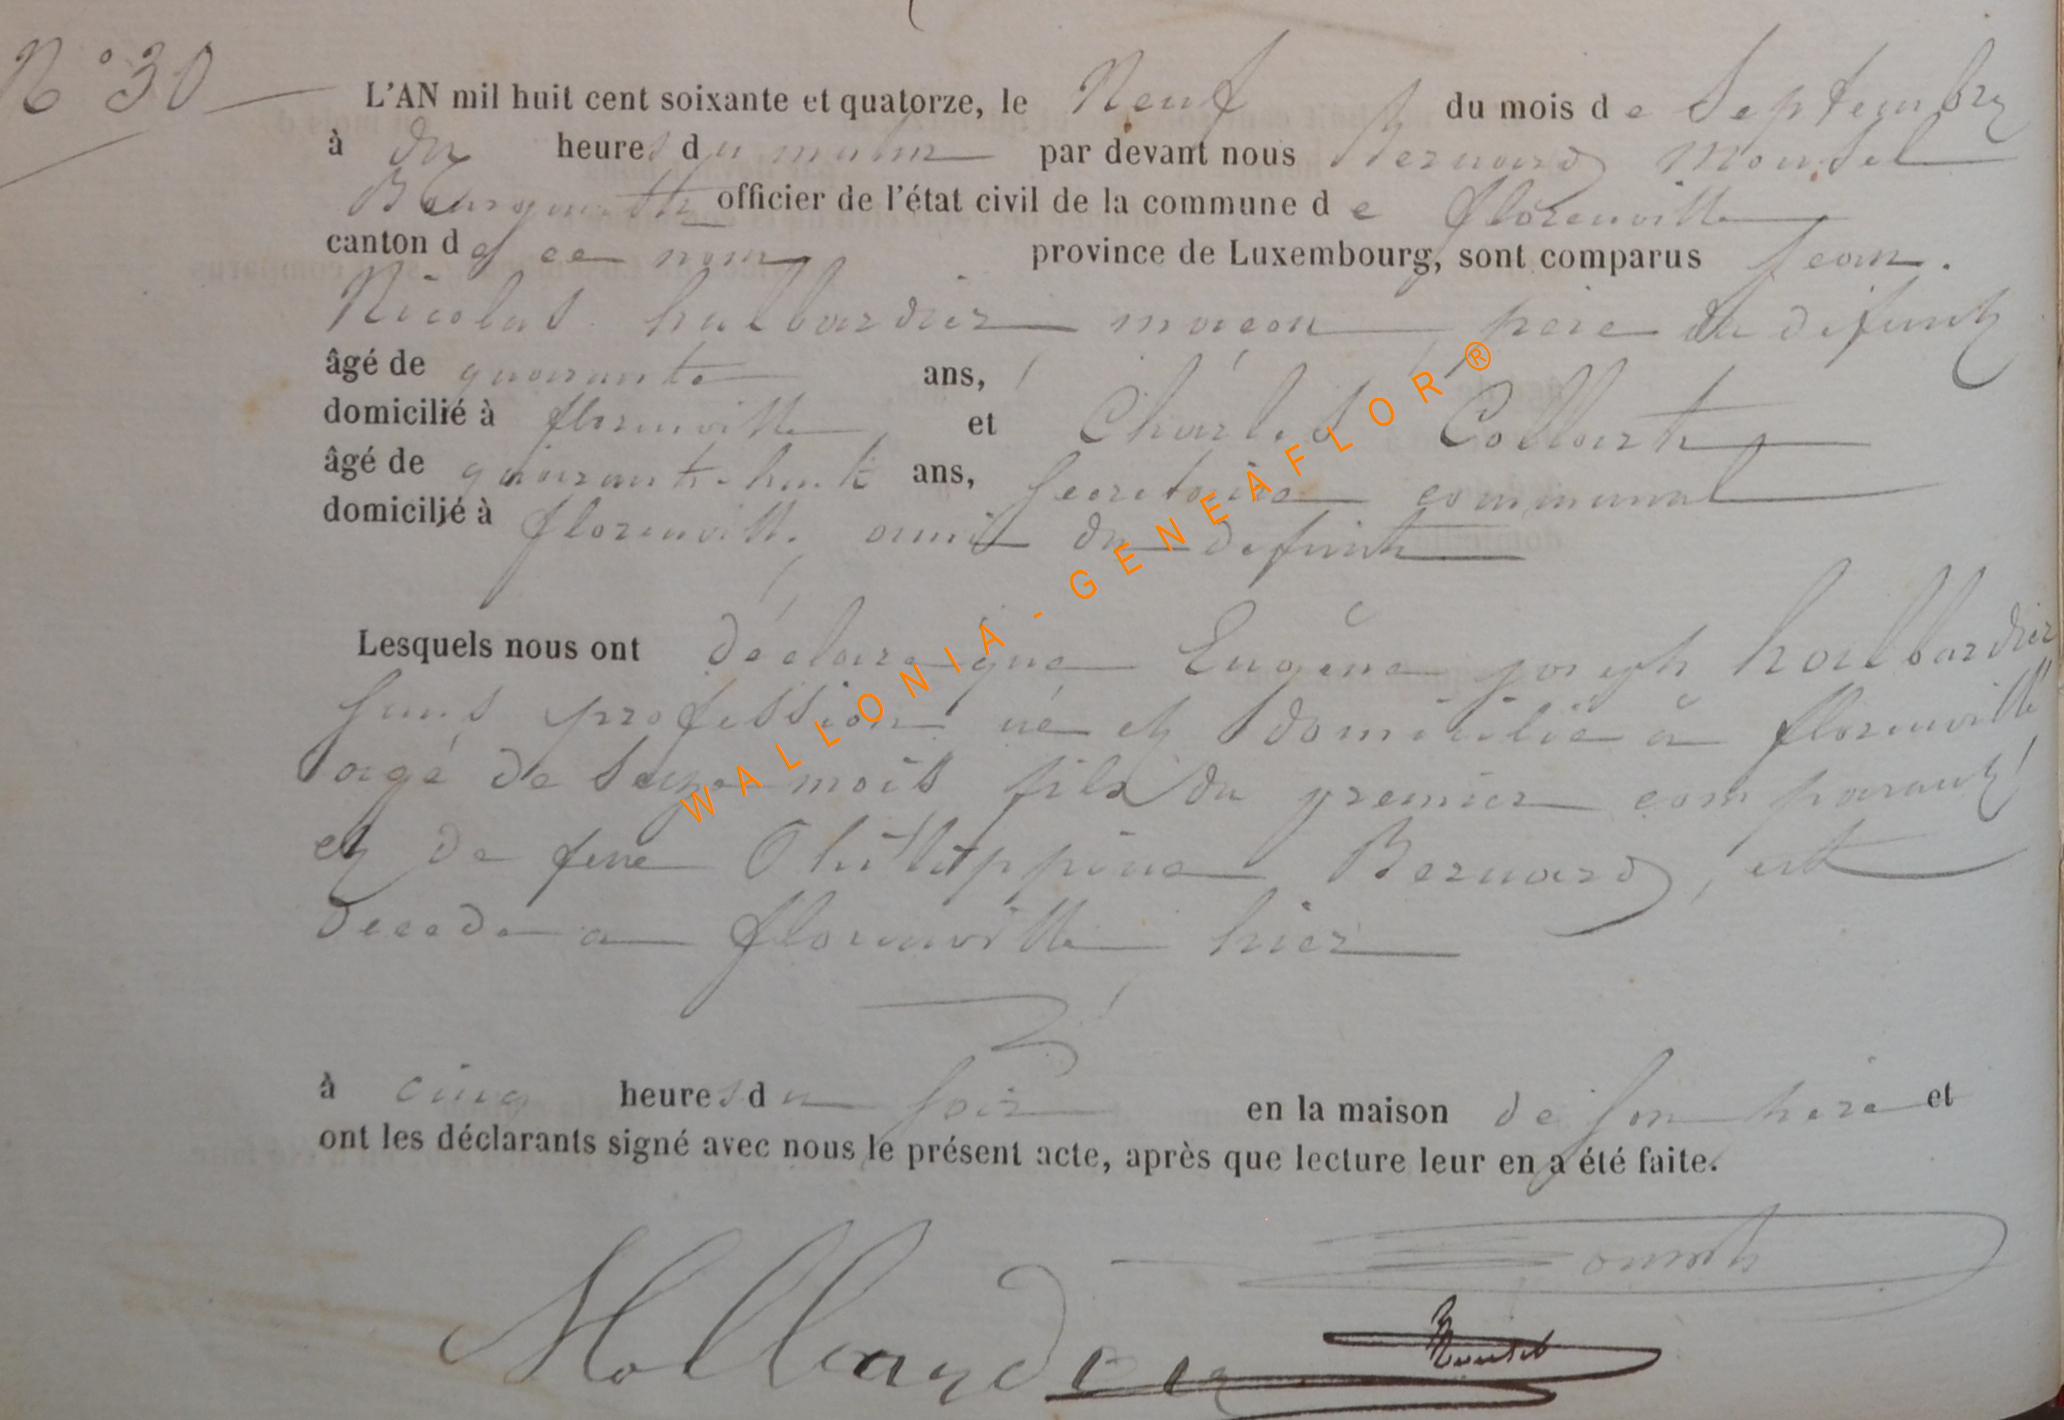 N° 30
L'AN mil huit cent soixante et quatorze, le Neuf du mois de Septembre
à dix heures du matin par devant nous Bernard Mousel
Bourgmestre officier de l'état civil de la commune de florenville
canton de ce nom province de Luxembourg, sont comparus Jean
Nicolas halbardier maçon, père du défunt
âgé de quarante ans,
domicilié à florenville et Charles Collart
âgé de quarante-huit ans, Secretaire communal
domicilié à florenville, ami du defunt
Lesquels nous ont déclaré que Eugène joseph halbardier
sans profession né et domicilié à florenville
agé de seize mois fils du premier comparant
et de feue Philippine Bernard, est
decedé a florenville hier
à cinq heures du soir en la maison de son père et
ont les déclarants signé avec nous le présent acte, après que lecture leur en a été faite.
Mousel
WALLONIA - GENEAFLOR ®